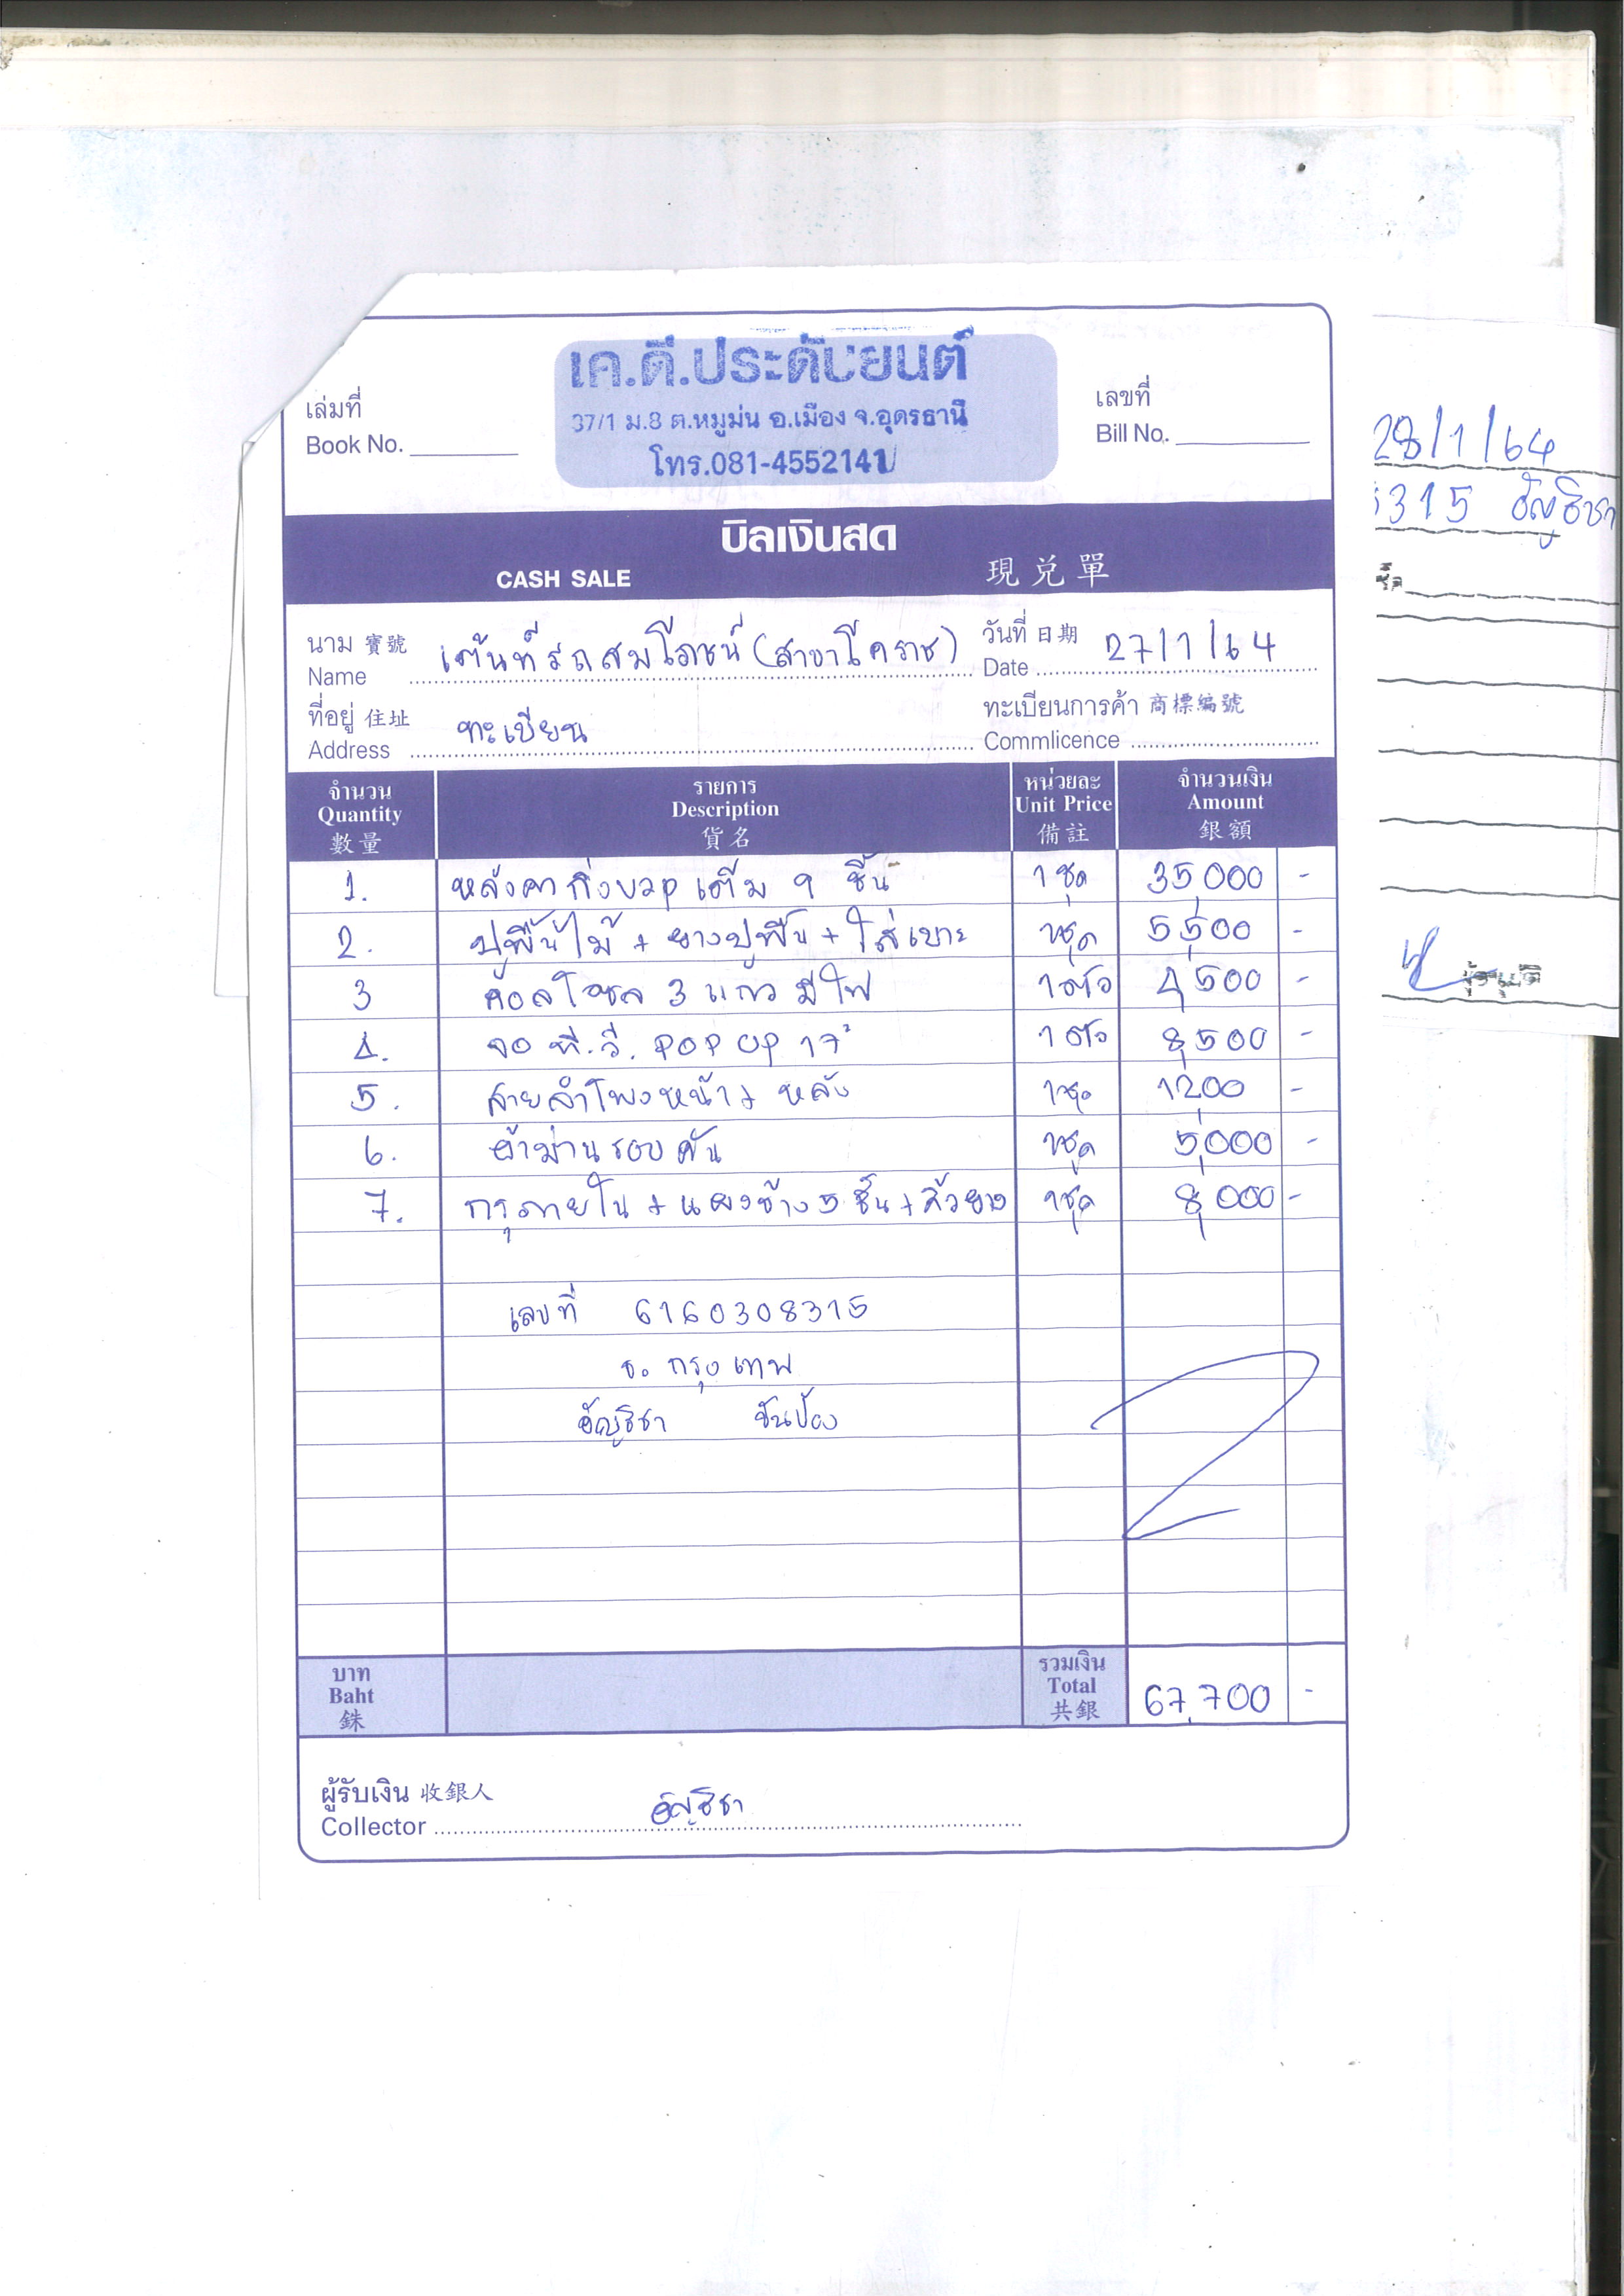 เค.ดี.ประดับยนต์
37/1 ม.8 ต.หมูม่น อ.เมือง จ.อุดรธานี
โทร.081-4552141
เล่มที่
Book No.
เลขที่
Bill No.
บิลเงินสด
CASH SALE 現兑單
นาม 寶號 Name เต้นท์รถสมโภชน์ (สาขาโคราช) วันที่ 日期 Date 27/1/64
ที่อยู่ 住址 Address ทะเบียน ทะเบียนการค้า 商標編號 Commlicence
จำนวน รายการ หน่วยละ จำนวนเงิน
Quantity Description Unit Price Amount
數量 貨名 備註 銀額
1. หลังคา กิ่งบวก เติม 9 ชิ้น 1 ชุด 35,000 -
2. ปูพื้นไม้ + ยางปูพื้น + ใส่เบาะ 1ชุด 5,500 -
3 คอลโซล 3 แถว มีไฟ 1 ตัว 4,500 -
4. จอ ที.วี. POP UP 17" 1 ตัว 8,500 -
5. สายลำโพงหน้า + หลัง 1ชุด 1,200 -
6. ผ้าม่านรอบคัน 1ชุด 5,000 -
7. กรุภายใน + แผงข้าง 5 ชิ้น + คิ้วยาง 1ชุด 8,000 -
เลขที่ 6160308315
ธ. กรุงเทพ
อัญธิชา
บาท รวมเงิน
Baht Total 67,700 -
銖 共銀
ผู้รับเงิน 收銀人
Collector อัญธิชา
28/1/64
315 อัญธิชา